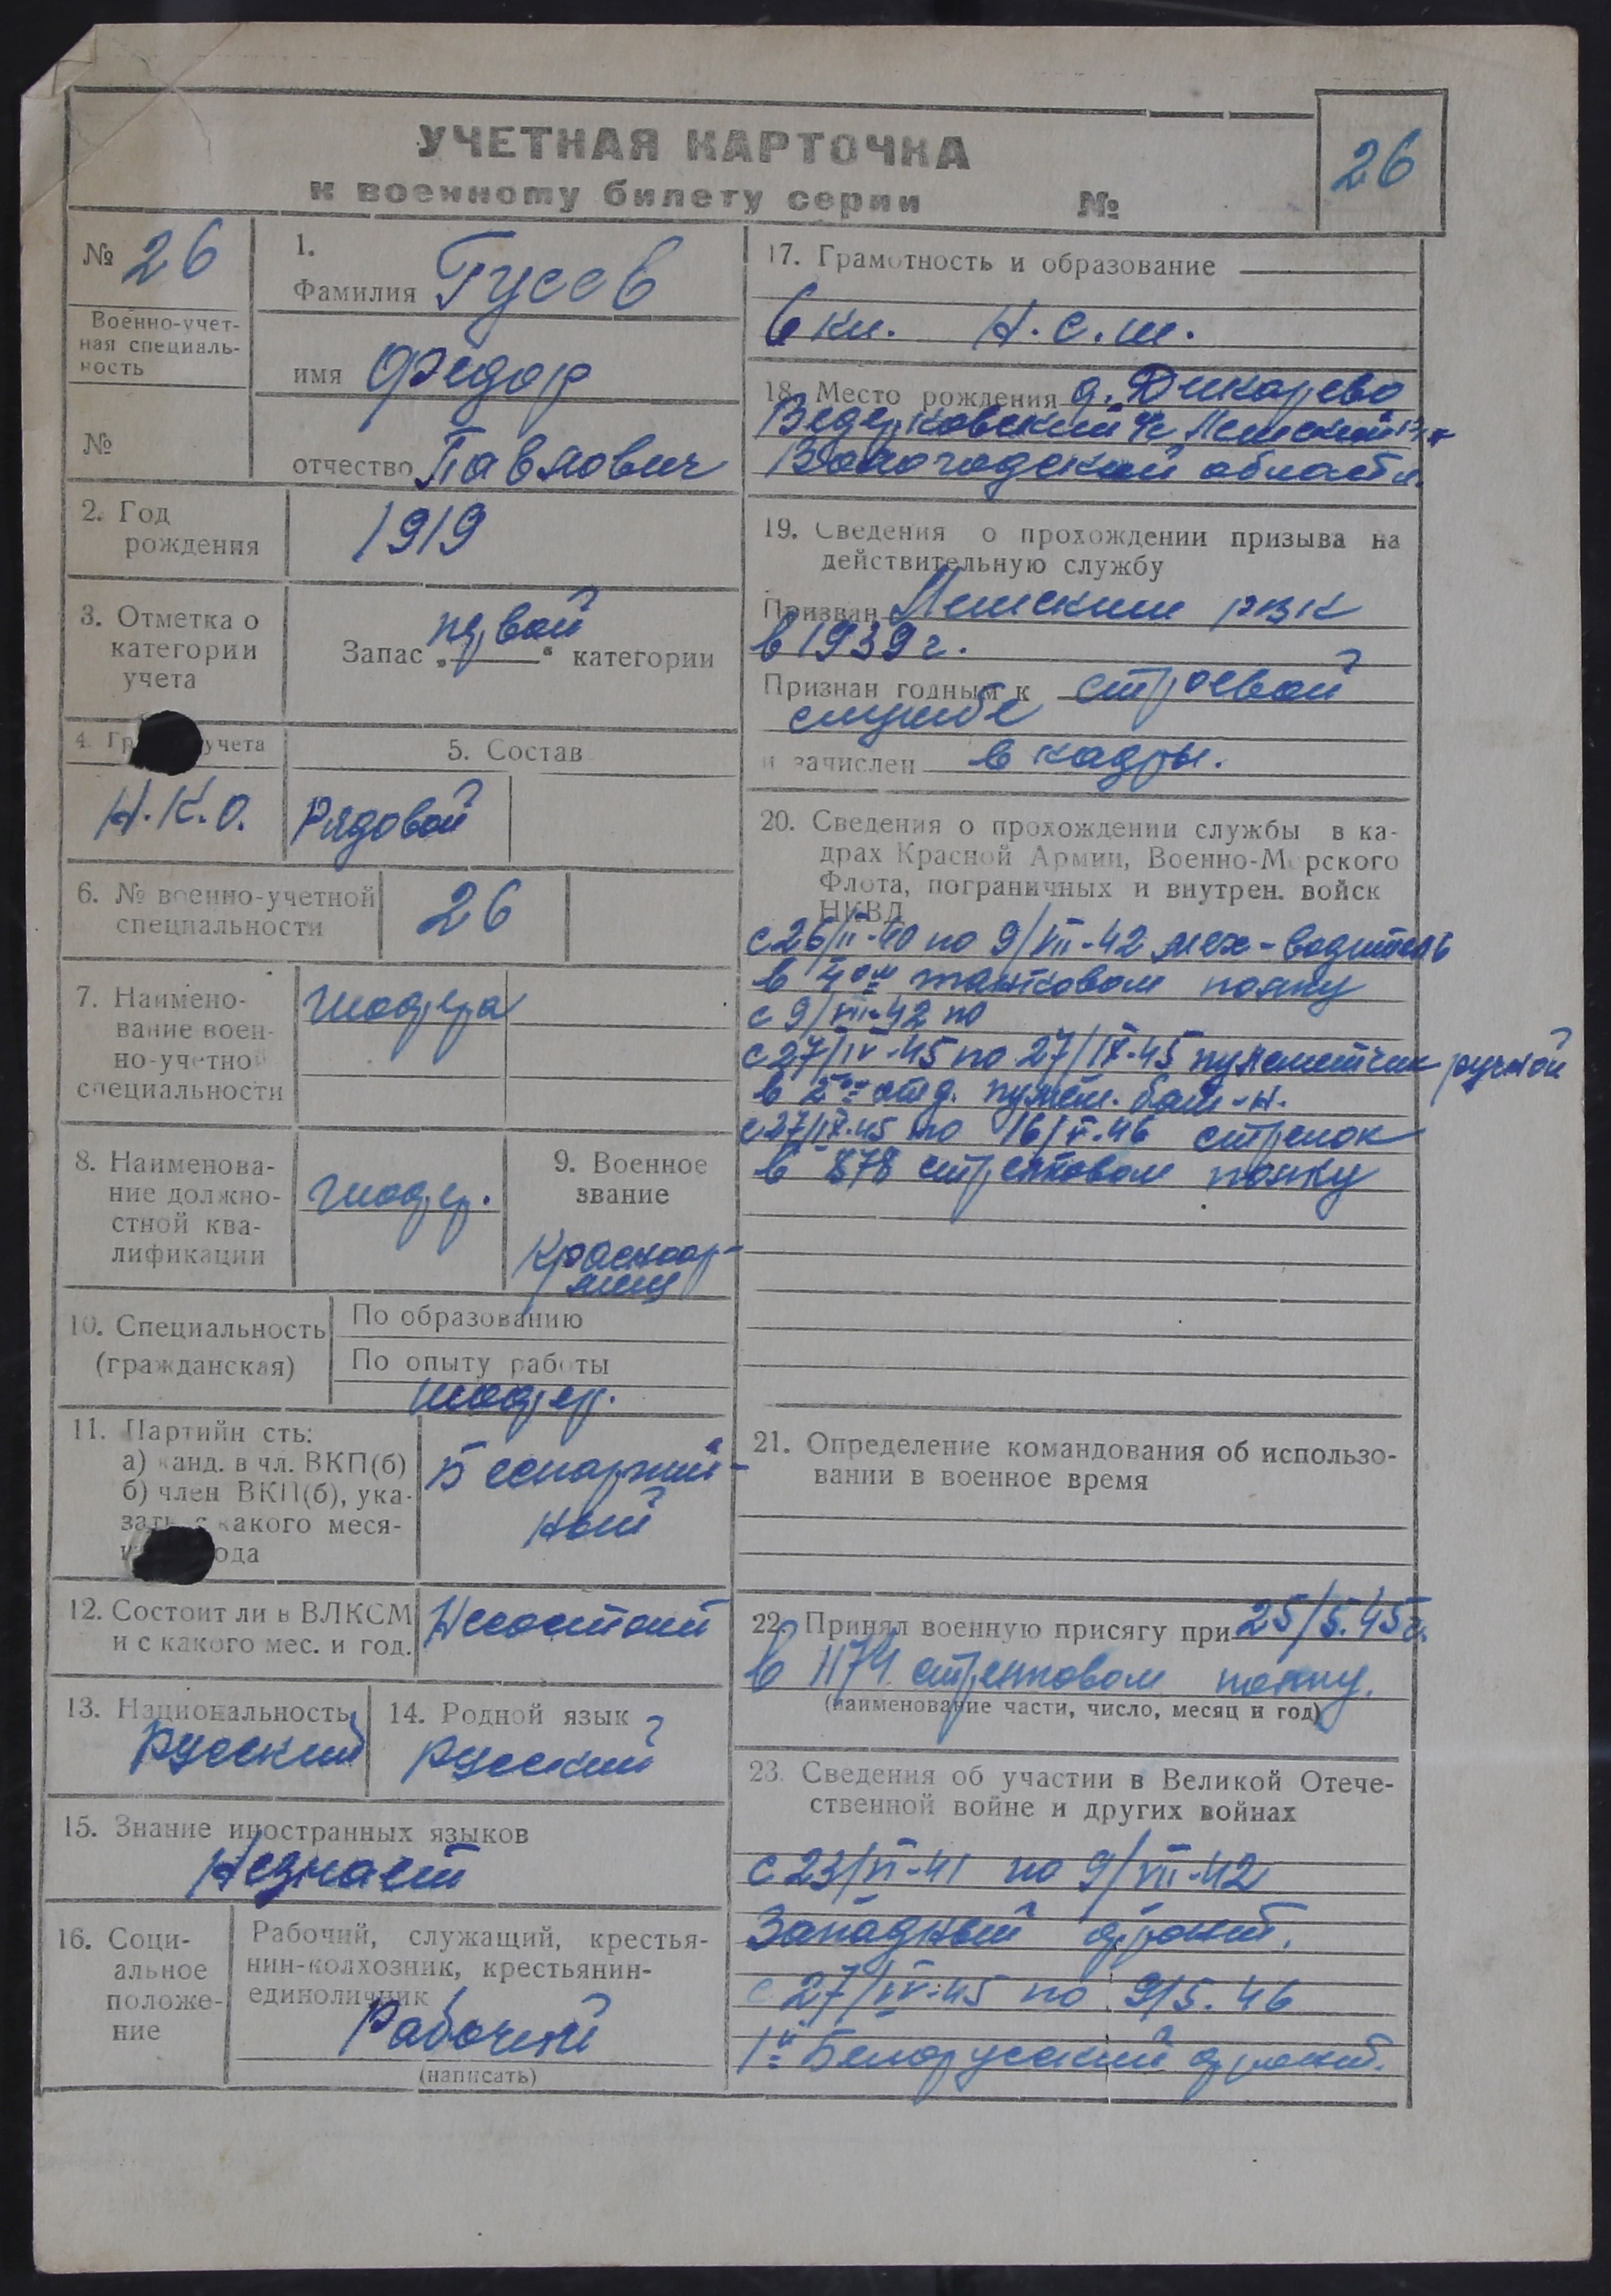 УЧЕТНАЯ КАРТОЧКА
к военному билету серии №
26
№ 26
Военно-учет-
ная специаль-
ность
№
1.
Фамилия Гусев
имя Федор
отчество Павлович
2. Год
рождения
1919
3. Отметка о
категории
учета
Запас „первой“ категории
4. Гр учета
Н.К.О.
5. Состав
Рядовой
6. № военно-учетной
специальности
26
7. Наимено-
вание воен-
но-учетной
специальности
шофера
8. Наименова-
ние должно-
стной ква-
лификации
шофер.
9. Военное
звание
Красноар-
меец
10. Специальность
(гражданская)
По образованию
По опыту работы
шофер.
11. Партийн сть:
а) канд. в чл. ВКП(б)
б) член ВКП(б), ука-
зать с какого меся-
ода
Беспартий-
ный
12. Состоит ли в ВЛКСМ
и с какого мес. и год.
Несостоит
13. Национальность
Русский
14. Родной язык
русский
15. Знание иностранных языков
Незнает
16. Соци-
альное
положе-
ние
Рабочий, служащий, крестья-
нин-колхозник, крестьянин-
единоличник
Рабочий
(написать)
17. Грамотность и образование
6 кл. Н.с.ш.
18. Место рождения д. Дикарево
Вологодской области.
19. Сведения о прохождении призыва на
действительную службу
Призван рвк
в 1939 г.
Признан годным к строевой
службе
и зачислен в кадры.
20. Сведения о прохождении службы в ка-
драх Красной Армии, Военно-Морского
Флота, пограничных и внутрен. войск
НКВД
с 26/II-40 по 9/VII-42 мех-водитель
в танковом полку
с 9/VII-42 по
с 27/IV-45 по 27/IX-45 пулеметчик ручной
в 2ом отд. пулем. бат-н.
с 27/IX-45 по 16/V-46 стрелок
в 878 стрелковом полку
21. Определение командования об использо-
вании в военное время
22. Принял военную присягу при 25/5.45г.
в 1174 стрелковом полку.
(наименование части, число, месяц и год)
23. Сведения об участии в Великой Отече-
ственной войне и других войнах
с 23/VI-41 по 9/VII-42
Западный фронт.
с 27/IV-45 по 9/5.46
1й Белорусский фронт.